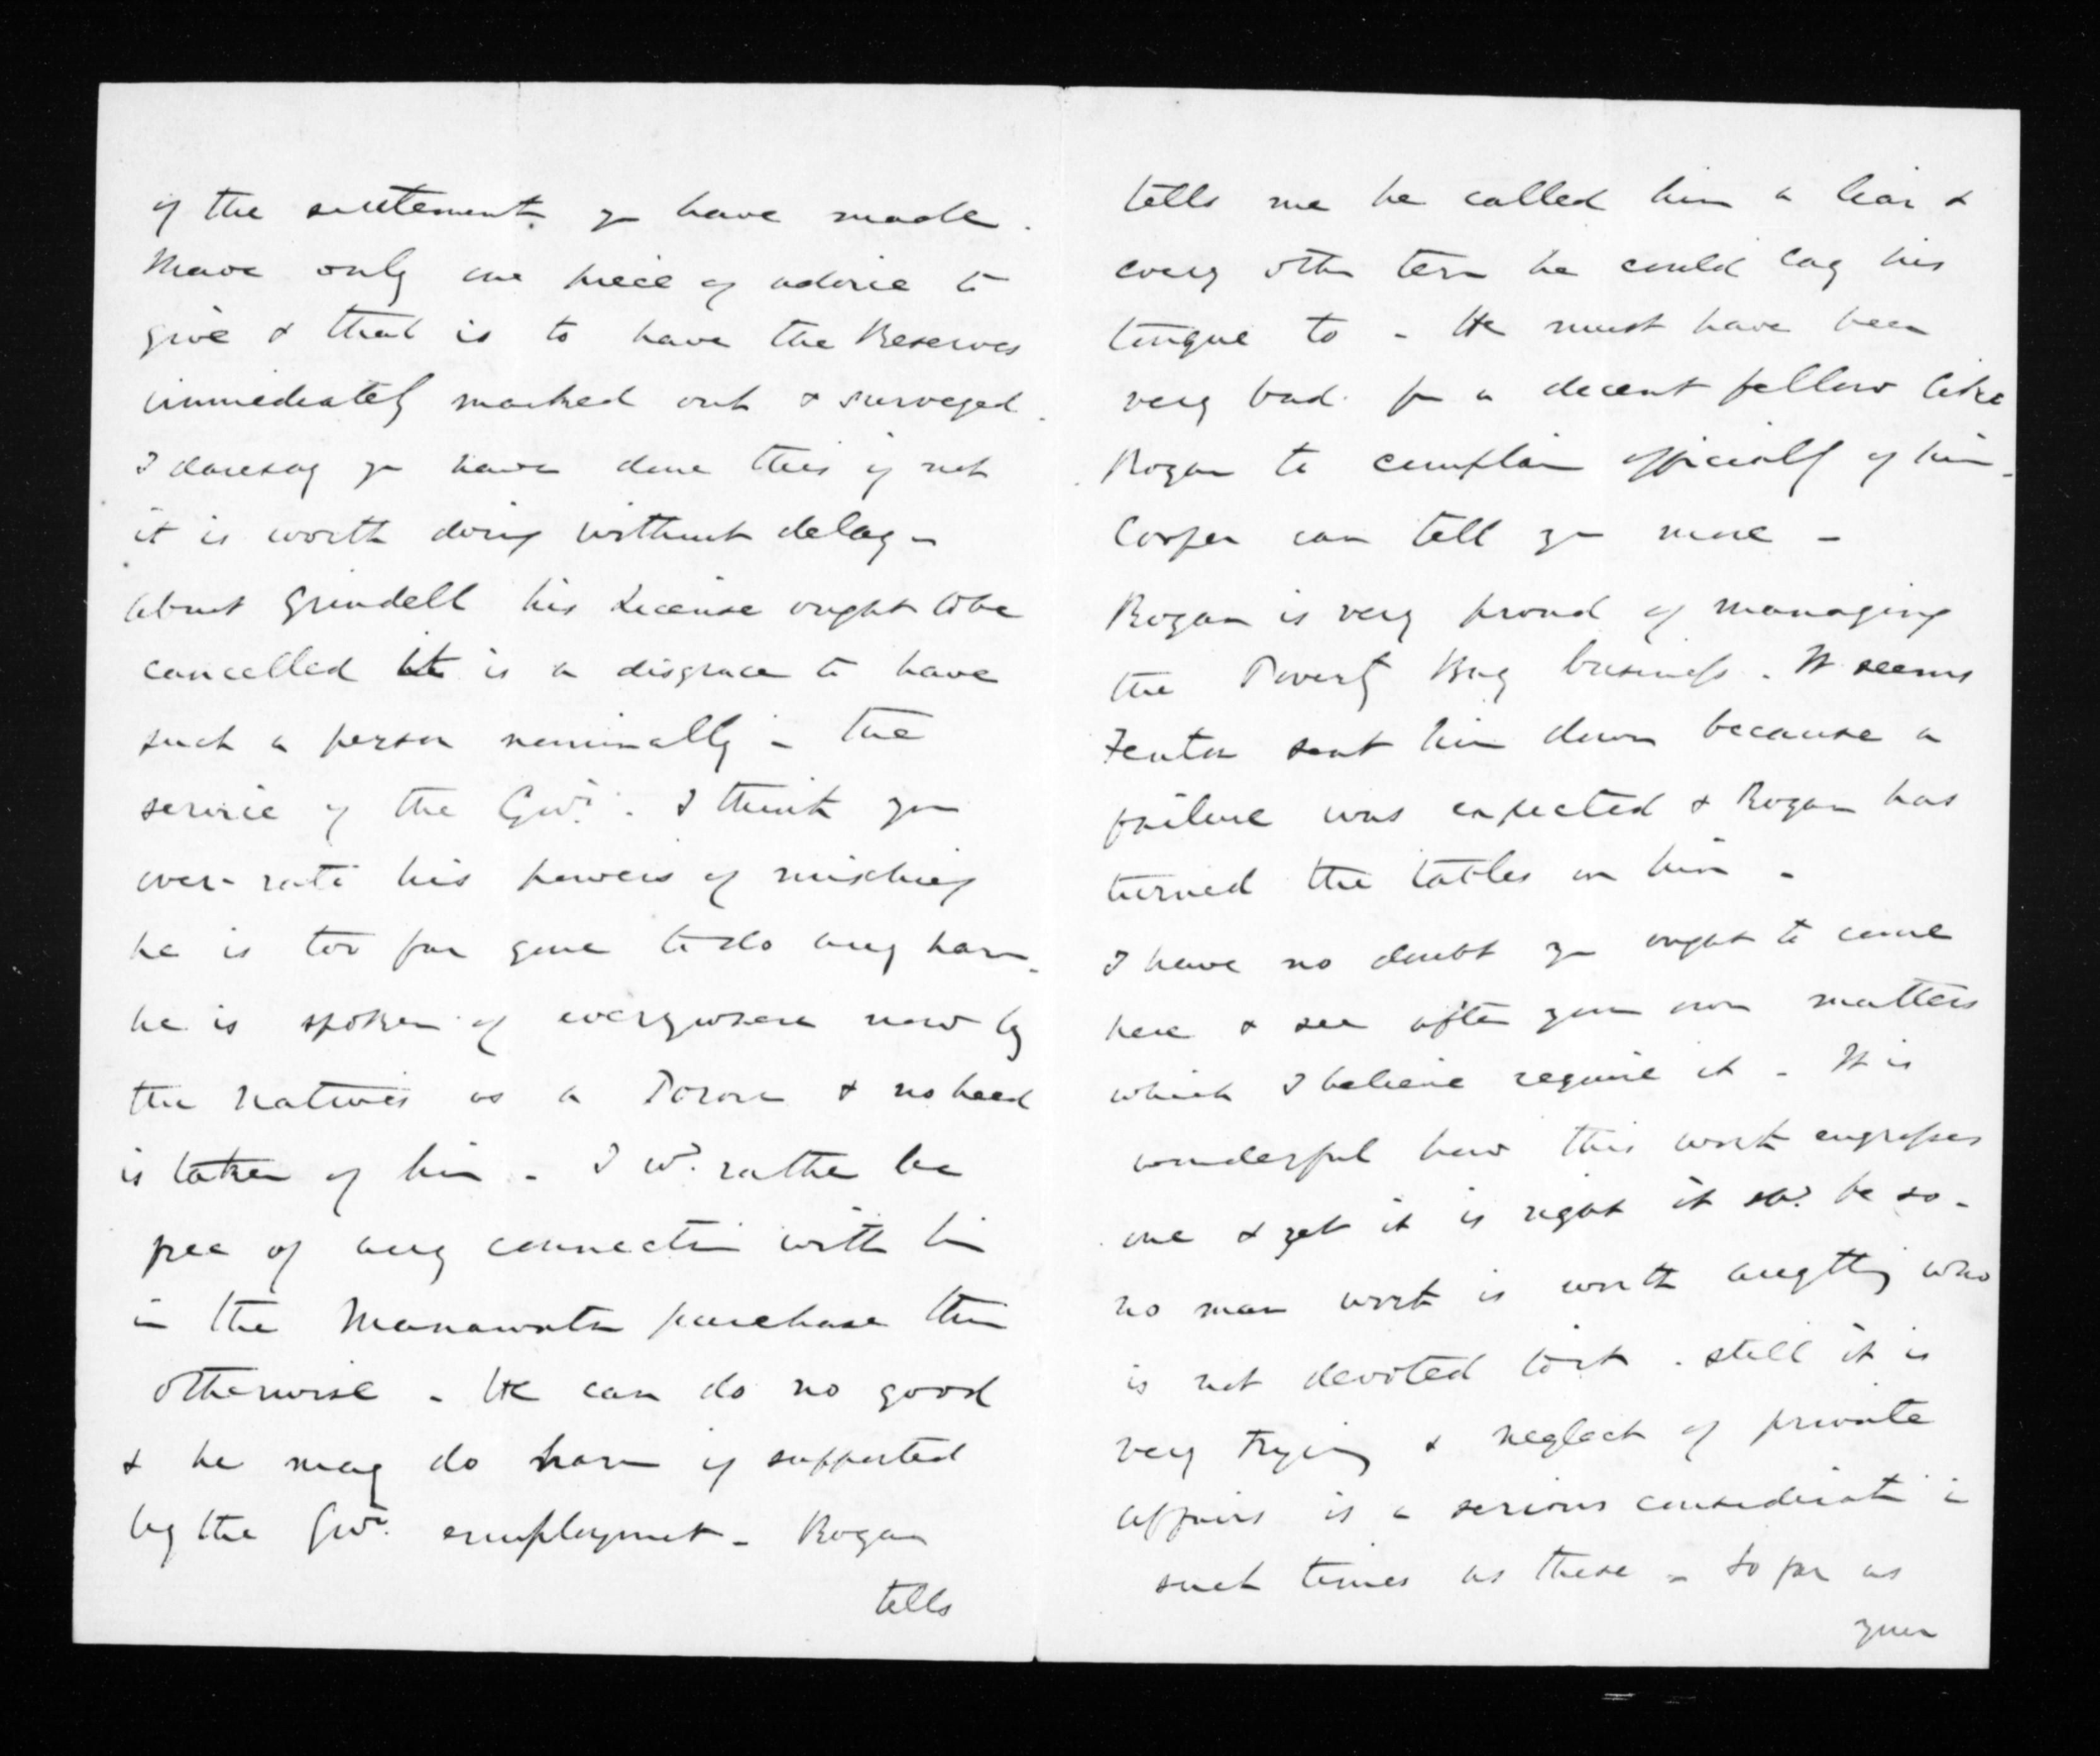 of the settlement you have made.
I have only one piece of advice to
give & that is to have the Reserves
immediately marked out & surveyed.
I daresay you have done this if not
it is worth doing without delay -
About Grindell his License ought to be
cancelled it is a disgrace to have
such a person nominally in the
service of the Govt. I think you
over-rate his powers of mischief
he is too far gone to do any harm.
he is spoken of everywhere now by
the natives as a & no heed
is taken of him - I wd. rather be
free of any connection with him
in the Manawatu purchase than
otherwise - He can do no good
& he may do harm if supported
by the Govt. employment - Rogan
tells
tells me he called him a liar &
every other term he could lay his
tongue to - He must have been
very bad for a decent fellow like
Rogan to complain officially of him -
Cooper can tell you more -
Rogan is very proud of managing
the Poverty Bay business. It seems
Fenton sent him down because a
failure was expected & Rogan has
turned the tables on him -
I have no doubt you ought to come
here & see after your own matters
which I believe require it - It is
wonderful how this work engrosses
one & yet it is right it shd. be so -
no man work is worth anything who
is not devoted to it. still it is
very trying & neglect of private
affairs is a serious consideration in
such times as these - So far as
your